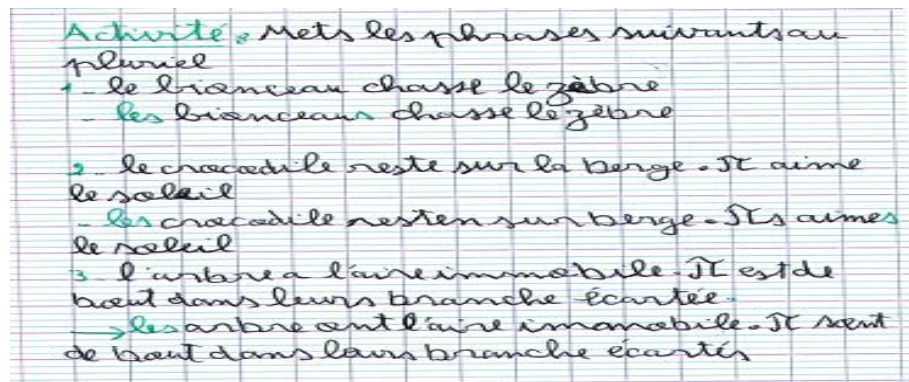 Activité : Mets les phrases suivants au
pluriel
1 - le lionceau chasse le zèbre
- les lionceaus chasse le zèbre
2 - le crocodile reste sur la berge. Il aime
le soleil
- les crocodile resten sur berge. Ils aimes
le soleil
3 - l'arbre a l'aire immobile. Il est de
bout dans leurs branche écartée.
→ les arbre ont l'aire immobile. Il sont
de bout dans leurs branche écartés